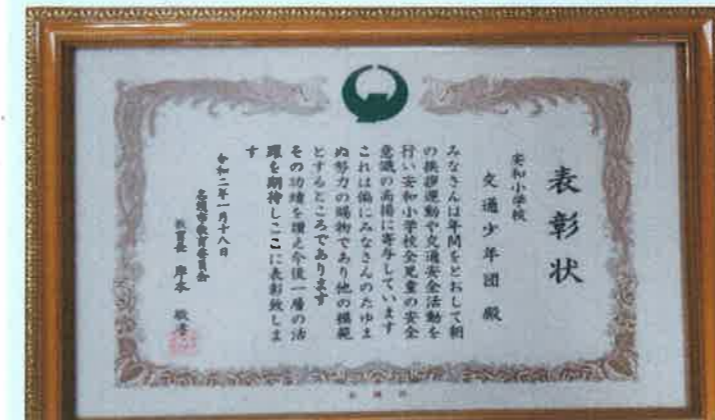 表彰状
安和小学校
交通少年団 殿
みなさんは年間をとおして朝
の挨拶運動や交通安全活動を
行い安和小学校全児童の安全
意識の高揚に寄与しています
これは偏にみなさんのたゆま
ぬ努力の賜物であり他の模範
とするところであります
その功績を讃え今後一層の活
躍を期待しここに表彰致しま
す
令和二年一月十八日
名護市教育委員会
教育長 岸本 敏孝